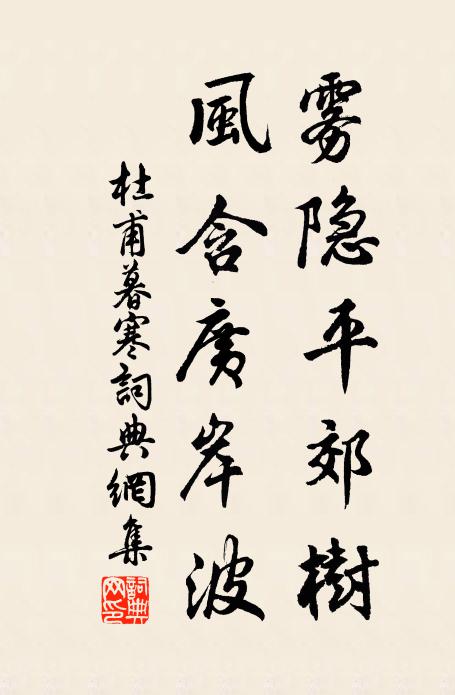 雾隐平郊樹
風含廣岸波
杜甫暮寒詞典網集
詞典网印